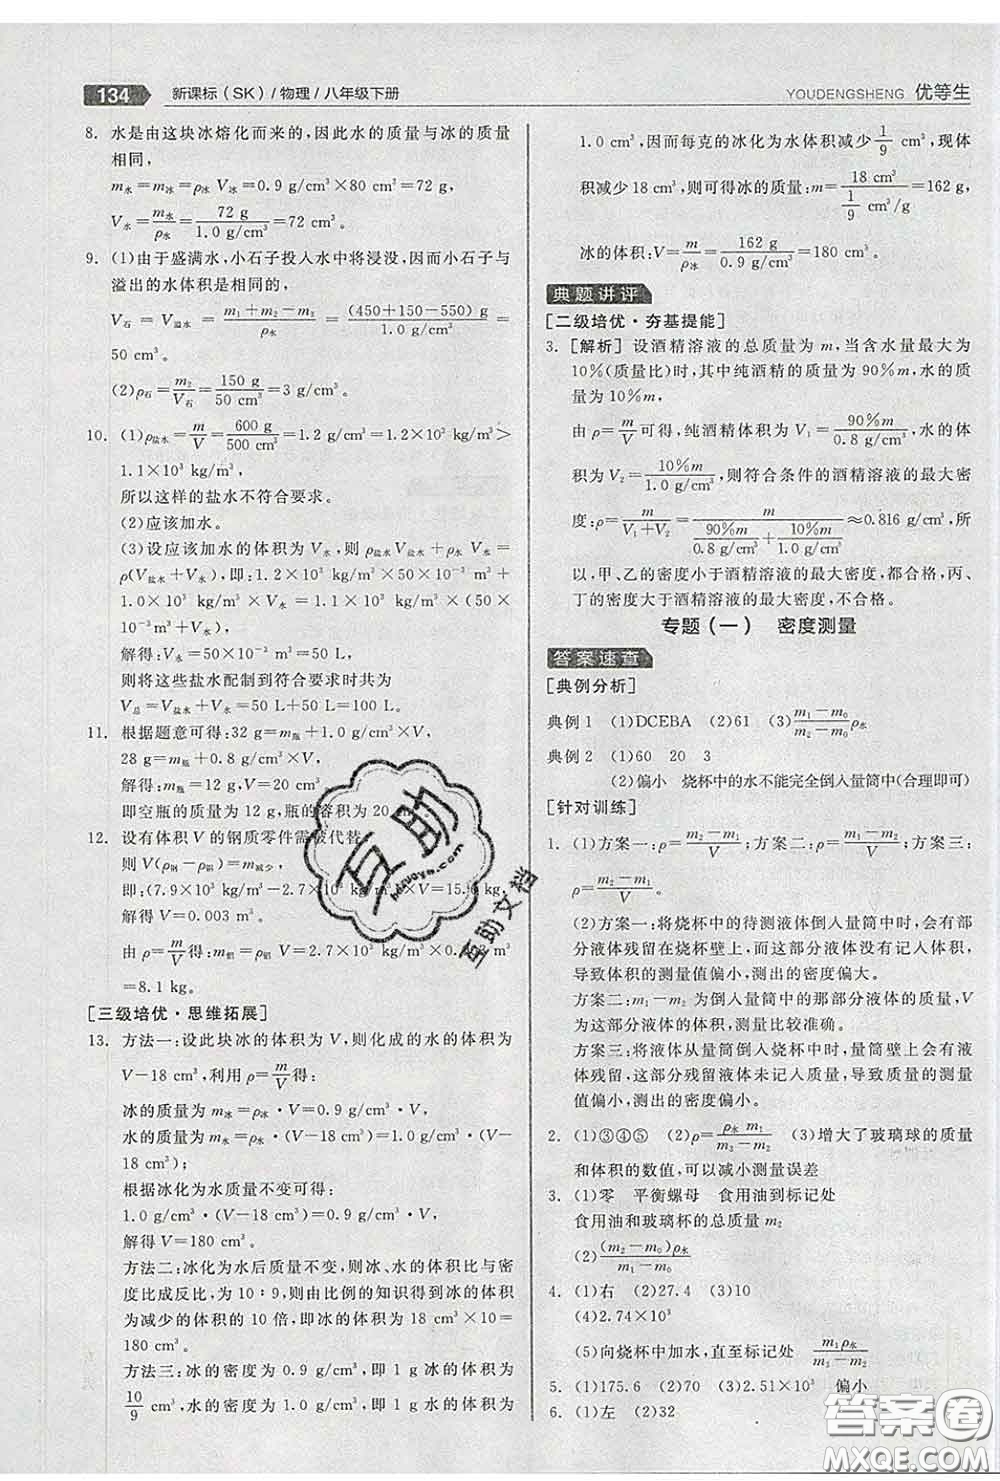 134 新课标(SK)/物理/八年级下册
YOUDENGSHENG 优等生
8. 水是由这块冰熔化而来的,因此水的质量与冰的质量
相同,
m水=m冰=ρ冰 V冰=0.9 g/cm³×80 cm³=72 g,
V水=m水/ρ水=72 g/1.0 g/cm³=72 cm³。
9. (1)由于盛满水,小石子投入水中将浸没,因而小石子与
溢出的水体积是相同的,
V石=V溢水=(m₁+m₂-m₃)/ρ水=(450+150-550) g/1.0 g/cm³=
50 cm³。
(2)ρ石=m₂/V石=150 g/50 cm³=3 g/cm³。
10. (1)ρ盐水=m/V=600 g/500 cm³=1.2 g/cm³=1.2×10³ kg/m³>
1.1×10³ kg/m³,
所以这样的盐水不符合要求。
(2)应该加水。
(3)设应该加水的体积为 V水,则 ρ盐水V盐水+ρ水 V水=
ρ(V盐水+V水),即:1.2×10³ kg/m³×50×10⁻³ m³+
1.0×10³ kg/m³×V水=1.1×10³ kg/m³×(50×
10⁻³ m³+V水),
解得:V水=50×10⁻³ m³=50 L,
则将这些盐水配制到符合要求时共为
V总=V盐水+V水=50 L+50 L=100 L。
11. 根据题意可得:32 g=m瓶+1.0 g/cm³×V,
28 g=m瓶+0.8 g/cm³×V;
解得:m瓶=12 g,V=20 cm³,
即空瓶的质量为 12 g,瓶的容积为 20
12. 设有体积 V 的钢质零件需被代替,
则 V(ρ钢-ρ铝)=m减少,
即:(7.9×10³ -2.7×10³ kg/m³)×V=15.6 kg,
解得 V=0.003 m³。
由 ρ=m/V得:m铝=2.7×10³ kg/m³×0.003 m³
=8.1 kg。
[三级培优·思维拓展]
13. 方法一:设此块冰的体积为 V,则化成的水的体积为
V-18 cm³,利用 ρ=m/V得:
冰的质量为 m冰=ρ冰·V=0.9 g/cm³·V,
水的质量为 m水=ρ水·V水=1.0 g/cm³·(V-
18 cm³);
根据冰化为水质量不变可得:
1.0 g/cm³·(V-18 cm³)=0.9 g/cm³·V,
解得 V=180 cm³。
方法二:冰化为水后质量不变,则水、冰的体积比与密
度比成反比,为 10∶9,根据比例的知识可得水的体积
变为减少的体积的 10 倍,即冰的体积为 10×18 cm³=
180 cm³。
方法三:冰的密度为 0.9 g/cm³,即 1 g 冰的体积为
10/9 cm³,水的密度为 1.0 g/cm³,即 1 g 水的体积为
1.0 cm³,因而每克的冰化为水体积减少 1/9 cm³,现体
积减少 18 cm³,则可得冰的质量:m=18 cm³/(1/9 cm³/g)=162 g,
冰的体积:V=m/ρ冰=162 g/0.9 g/cm³=180 cm³。
典题讲评
[二级培优·夯基提能]
3. [解析] 设酒精溶液的总质量为 m,当含水量最大为
10%(质量比)时,其中纯酒精的质量为 90%m,水的质
量为 10%m。
由 ρ=m/V可得,纯酒精体积为 V₁=90%m/0.8 g/cm³,水的体
积为 V₂=10%m/1.0 g/cm³,则符合条件的酒精溶液的最大密
度:ρ=m/(V₁+V₂)=m/(90%m/0.8 g/cm³+10%m/1.0 g/cm³)≈0.816 g/cm³,所
以,甲、乙的密度小于酒精溶液的最大密度,都合格,丙、
丁的密度大于酒精溶液的最大密度,不合格。
专题(一) 密度测量
答案速查
[典例分析]
典例 1 (1)DCEBA (2)61 (3)(m₁-m₀)/(m₂-m₀)ρ水
典例 2 (1)60 20 3
(2)偏小 烧杯中的水不能完全倒入量筒中(合理即可)
[针对训练]
1. (1)方案一:ρ=(m₂-m₁)/V;方案二:ρ=(m₁-m₂)/V;方案三:
ρ=(m₂-m₁)/V。
(2)方案一:将烧杯中的待测液体倒入量筒中时,会有部
分液体残留在烧杯壁上,而这部分液体没有记入体积,
导致体积的测量值偏小,测出的密度偏大。
方案二:m₁-m₂ 为倒入量筒中的那部分液体的质量,V
为这部分液体的体积,测量比较准确。
方案三:将液体从量筒倒入烧杯中时,量筒壁上会有液
体残留,这部分残留液体未记入质量,导致质量的测量
值偏小,测出的密度偏小。
2. (1)③④⑤ (2)ρ=ρ水 m₁/(m₂-m₁) (3)增大了玻璃球的质量
和体积的数值,可以减小测量误差
3. (1)零 平衡螺母 食用油到标记处
食用油和玻璃杯的总质量 m₂
(2)(m₂-m₀)ρ水/(m₁-m₀)
4. (1)右 (2)27.4 (3)10
(4)2.74×10³
(5)向烧杯中加水,直至标记处 m₁ρ水/(m₁-m₂)
5. (1)175.6 (2)70 (3)2.51×10³ 偏小
6. (1)左 (2)32
互助
hehuoya.com
互助文档
答案圈
MXQE.COM